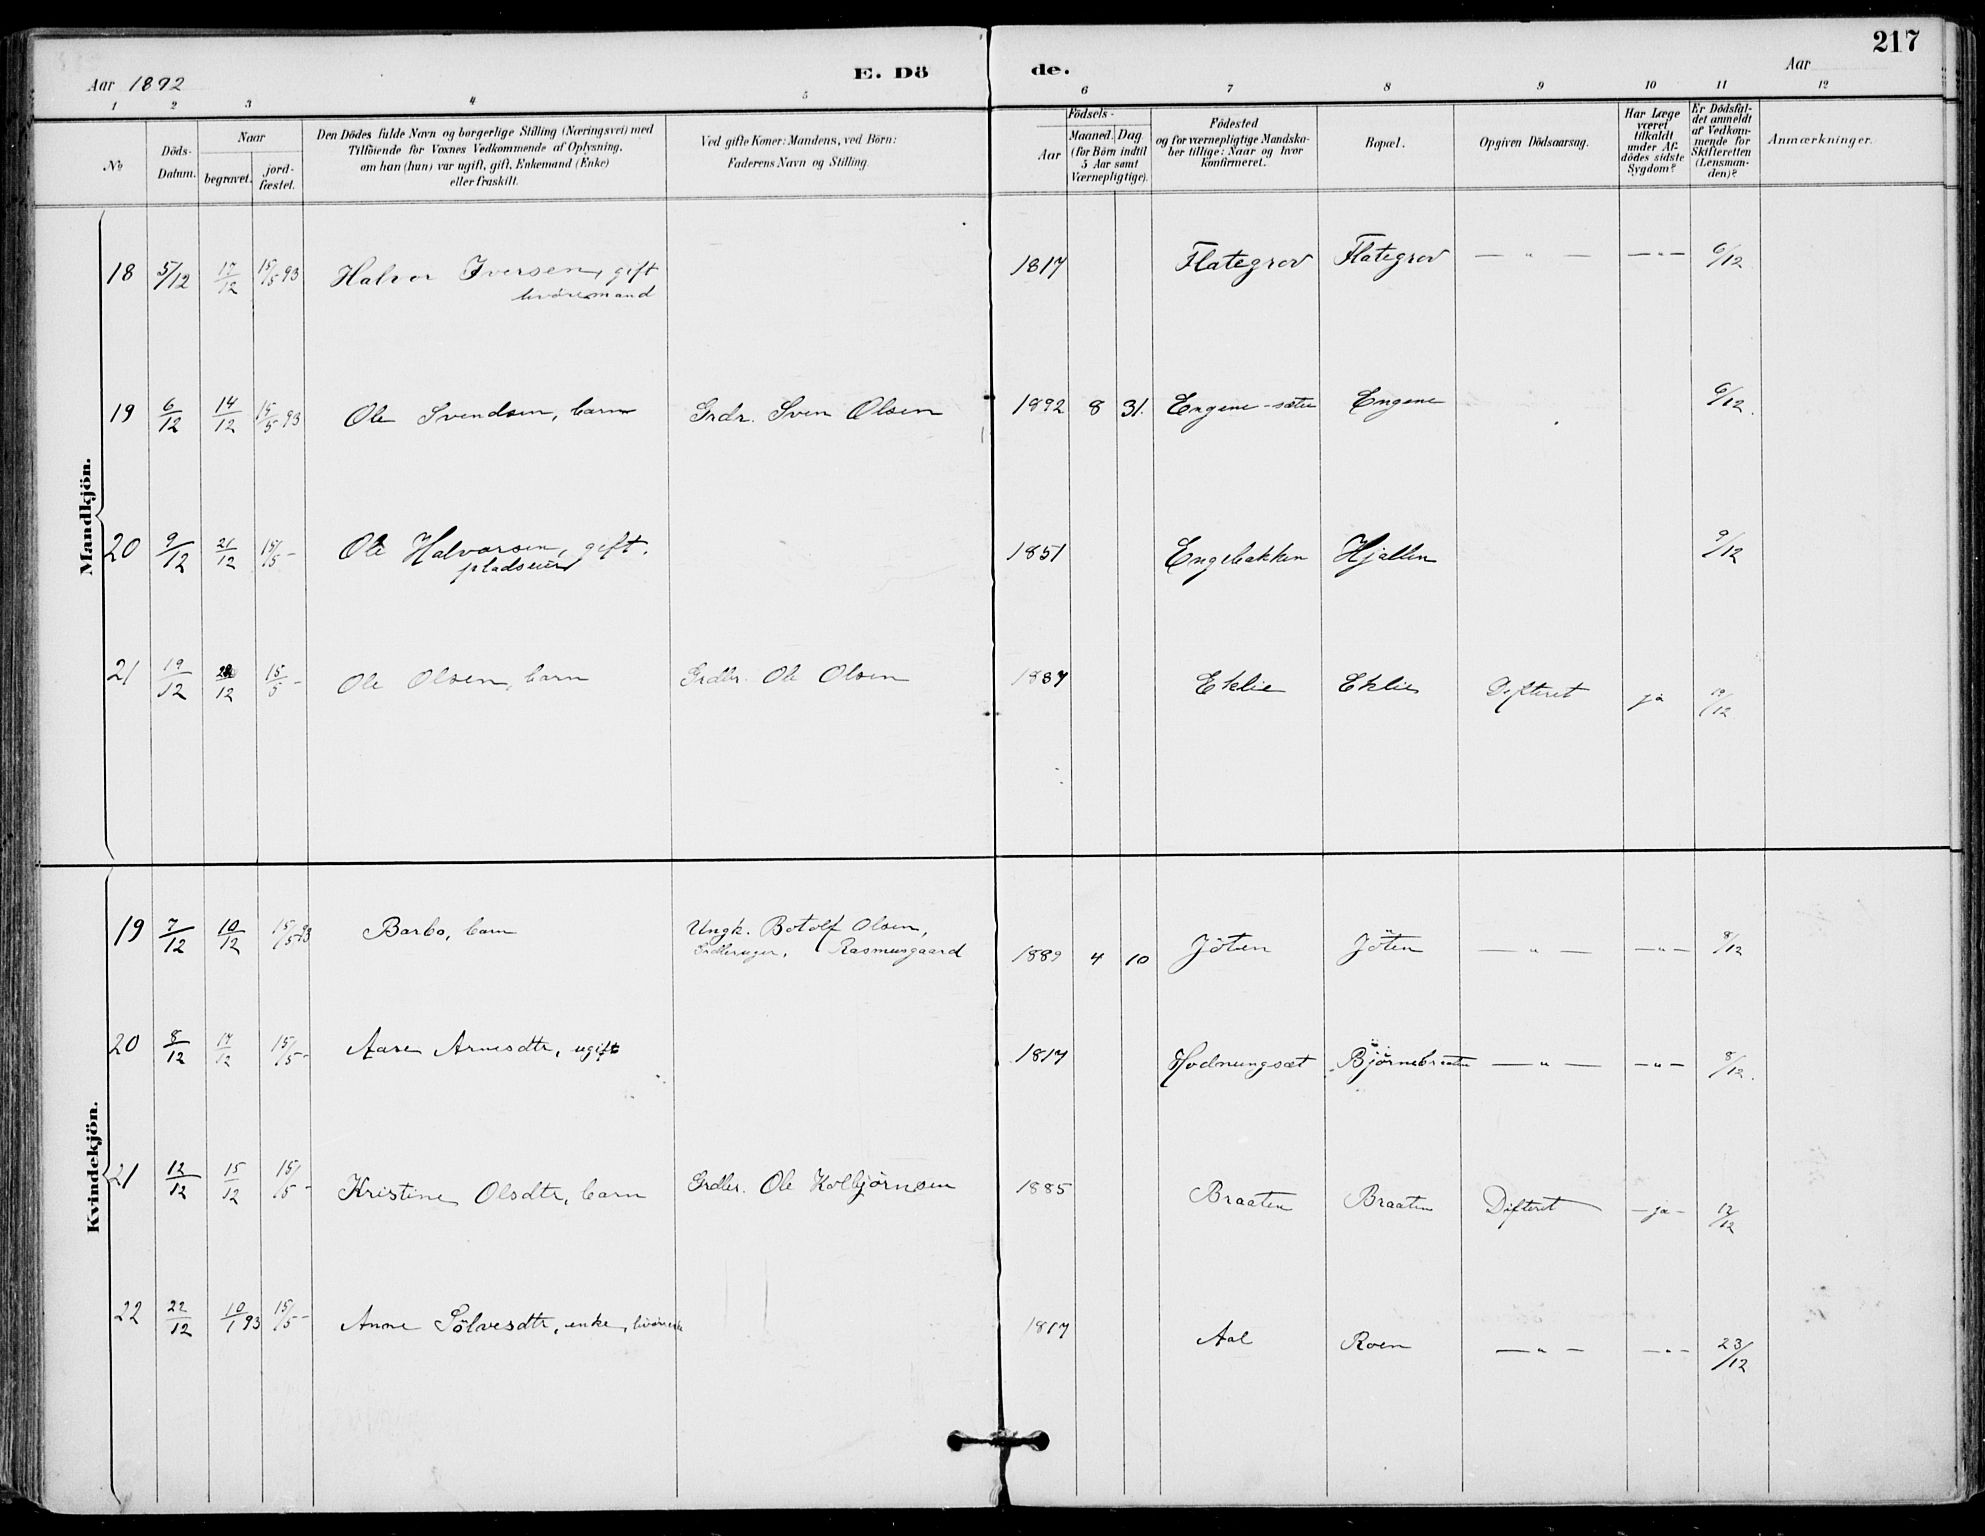 217
Aar 1892 E. Dö de. Aar
1 2 3 4 5 6 7 8 9 10 11 12
No
Döds-
Datum.
Naar
begravet.
jord-
fæstet.
Den Dödes fulde Navn og borgerlige Stilling (Næringsvei) med
Tilföiende for Voxnes Vedkommende af Oplysning,
om han (hun) var ugift, gift, Enkemand (Enke)
eller fraskilt.
Ved gifte Koner: Mandens, ved Börn:
Faderens Navn og Stilling
Födsels-
Aar
Maaned. Dag.
(for Börn indtil
5 Aar samt
Værnepligtige).
Födested
og for værnepligtige Mandska-
ber tillige: Naar og hvor
konfirmeret.
Bopæl.
Opgiven Dödsaarsag.
Har Læge
været
tilkaldt
under Af-
dödes sidste
Sygdom?
Er Dödsfal-
det anmeldt
af Vedkom-
mende for
Skifteretten
(Lensman-
den)?
Anmærkninger.
Mandkjön.
18 5/12 17/12 15/5 93 Halvor Iversen, gift 1817 Flategrov Flategrov — " — — " — 6/12
livöresmand
19 6/12 14/12 15/5 93 Ole Svendsen, barn Grdr. Sven Olsen 1892 8 31. Engene-sæter Engene 6/12.
20 9/12 21/12 15/5 - Ole Halvorsen, gift. 1851 Engebakken Hjallen 9/12
pladseier
21 19/12 /12 15/5 - Ole Olsen, barn Grdbr. Ole Olsen 1887 Eklie Eklie Difteret ja 19/12
Kvindekjön.
19 7/12 10/12 15/5 93 Barbo, barn Ungk. Botolf Olsen, 1889 4 10 Jöten Jöten — " — — " — 8/12
Grdbruger, Rasmusgaard
20 8/12 14/12 15/5 - Aase Arnesdtr, ugift 1817 Hodnungsæt Björnebraaten — " — — " — 8/12.
21 12/12 15/12 15/5 - Kristine Olsdtr, barn Grdbr. Ole Kolbjørnsen 1885 Braaten Braaten Difteret — ja — 12/12
22 22/12 10/1 93 15/5 - Anne Sölvesdtr, enke, 1817 Aal Roen — " — — " — 23/12